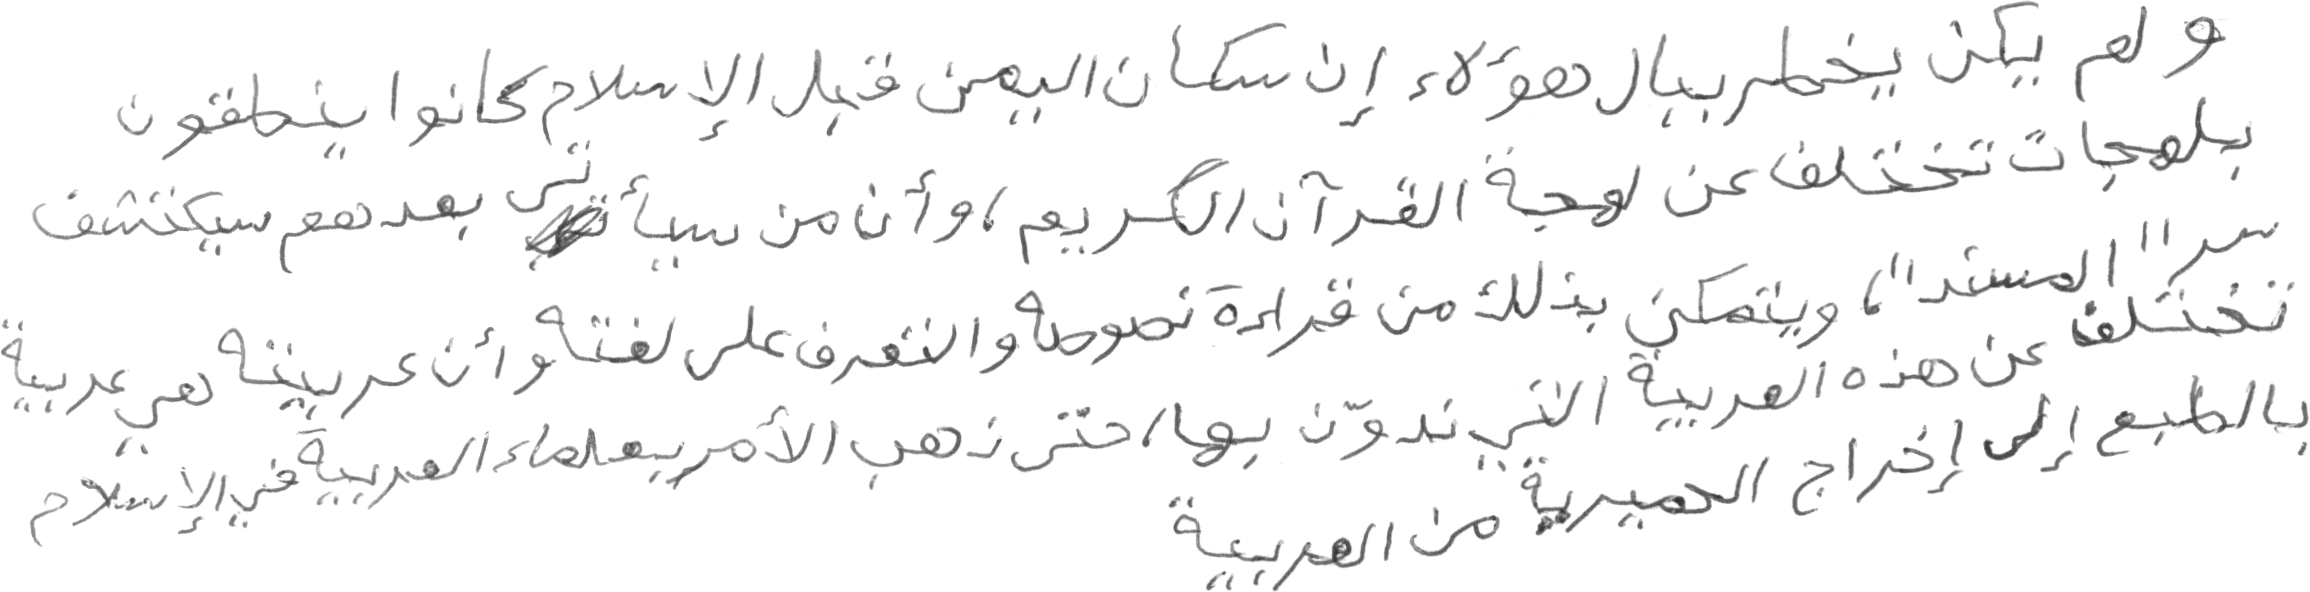 ولم يكن يخطر ببال هؤلاء إن سكان اليمن قبل الإسلام كانوا ينطقون
بلهجات تختلف عن لهجة القرآن الكريم، وأن من سيأتي بعدهم سيكتشف
سر "المسند"، ويتمكن بذلك من قراءة نصوصه والتعرف على لغته وأن عربيته هي عربية
تختلف عن هذه العربية التي ندوّن بها، حتى ذهب الأمر بعلماء العربية في الإسلام
بالطبع إلى إخراج الحميرية من العربية